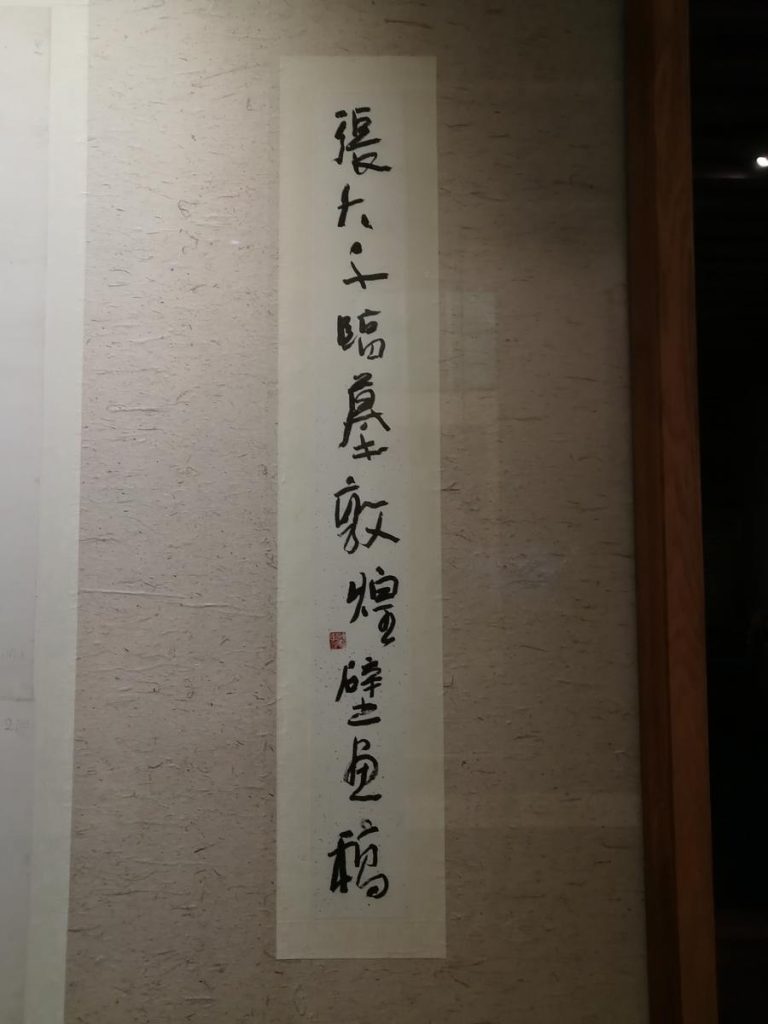 張大千臨摹敦煌壁畫稿